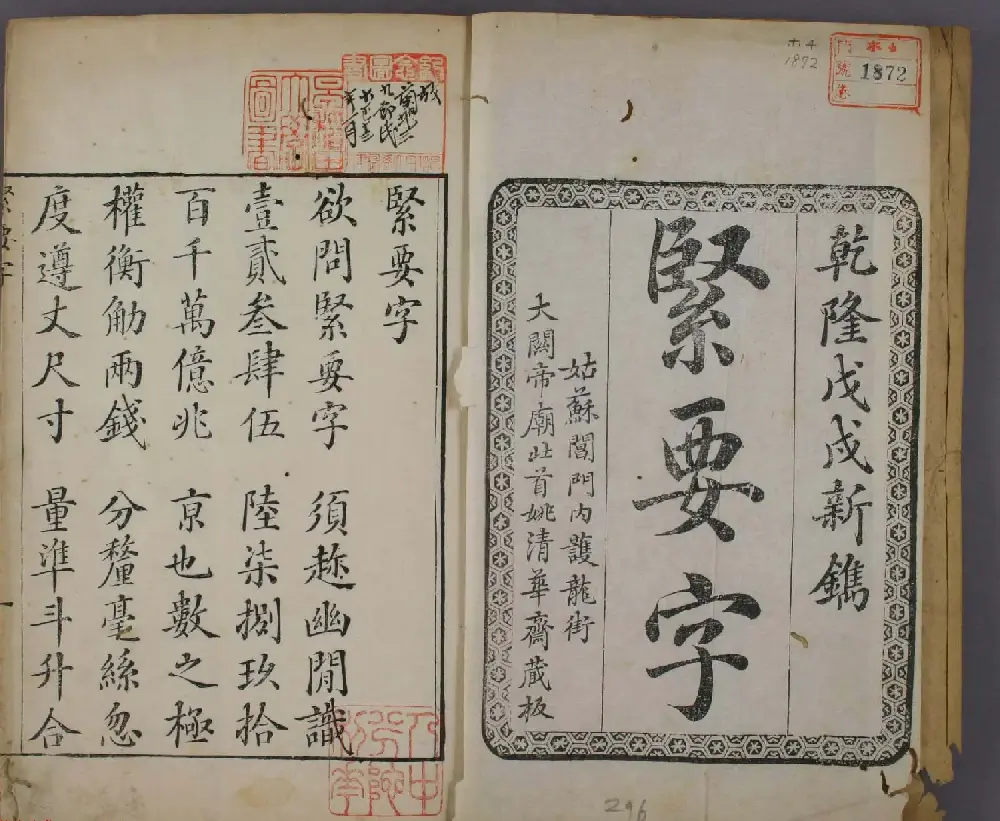 乾隆戊戌新鐫
緊要字
姑蘇閶門內護龍街
大關帝廟北首姚清華齋藏板
ホ4
1892
門
號
1872
296
緊要字
欲問緊要字 須趂幽閒識
壹貳叁肆伍 陸柒捌玖拾
百千萬億兆 京也數之極
權衡觔兩錢 分釐毫絲忽
度遵丈尺寸 量準斗升合
圖書
緊要字
一